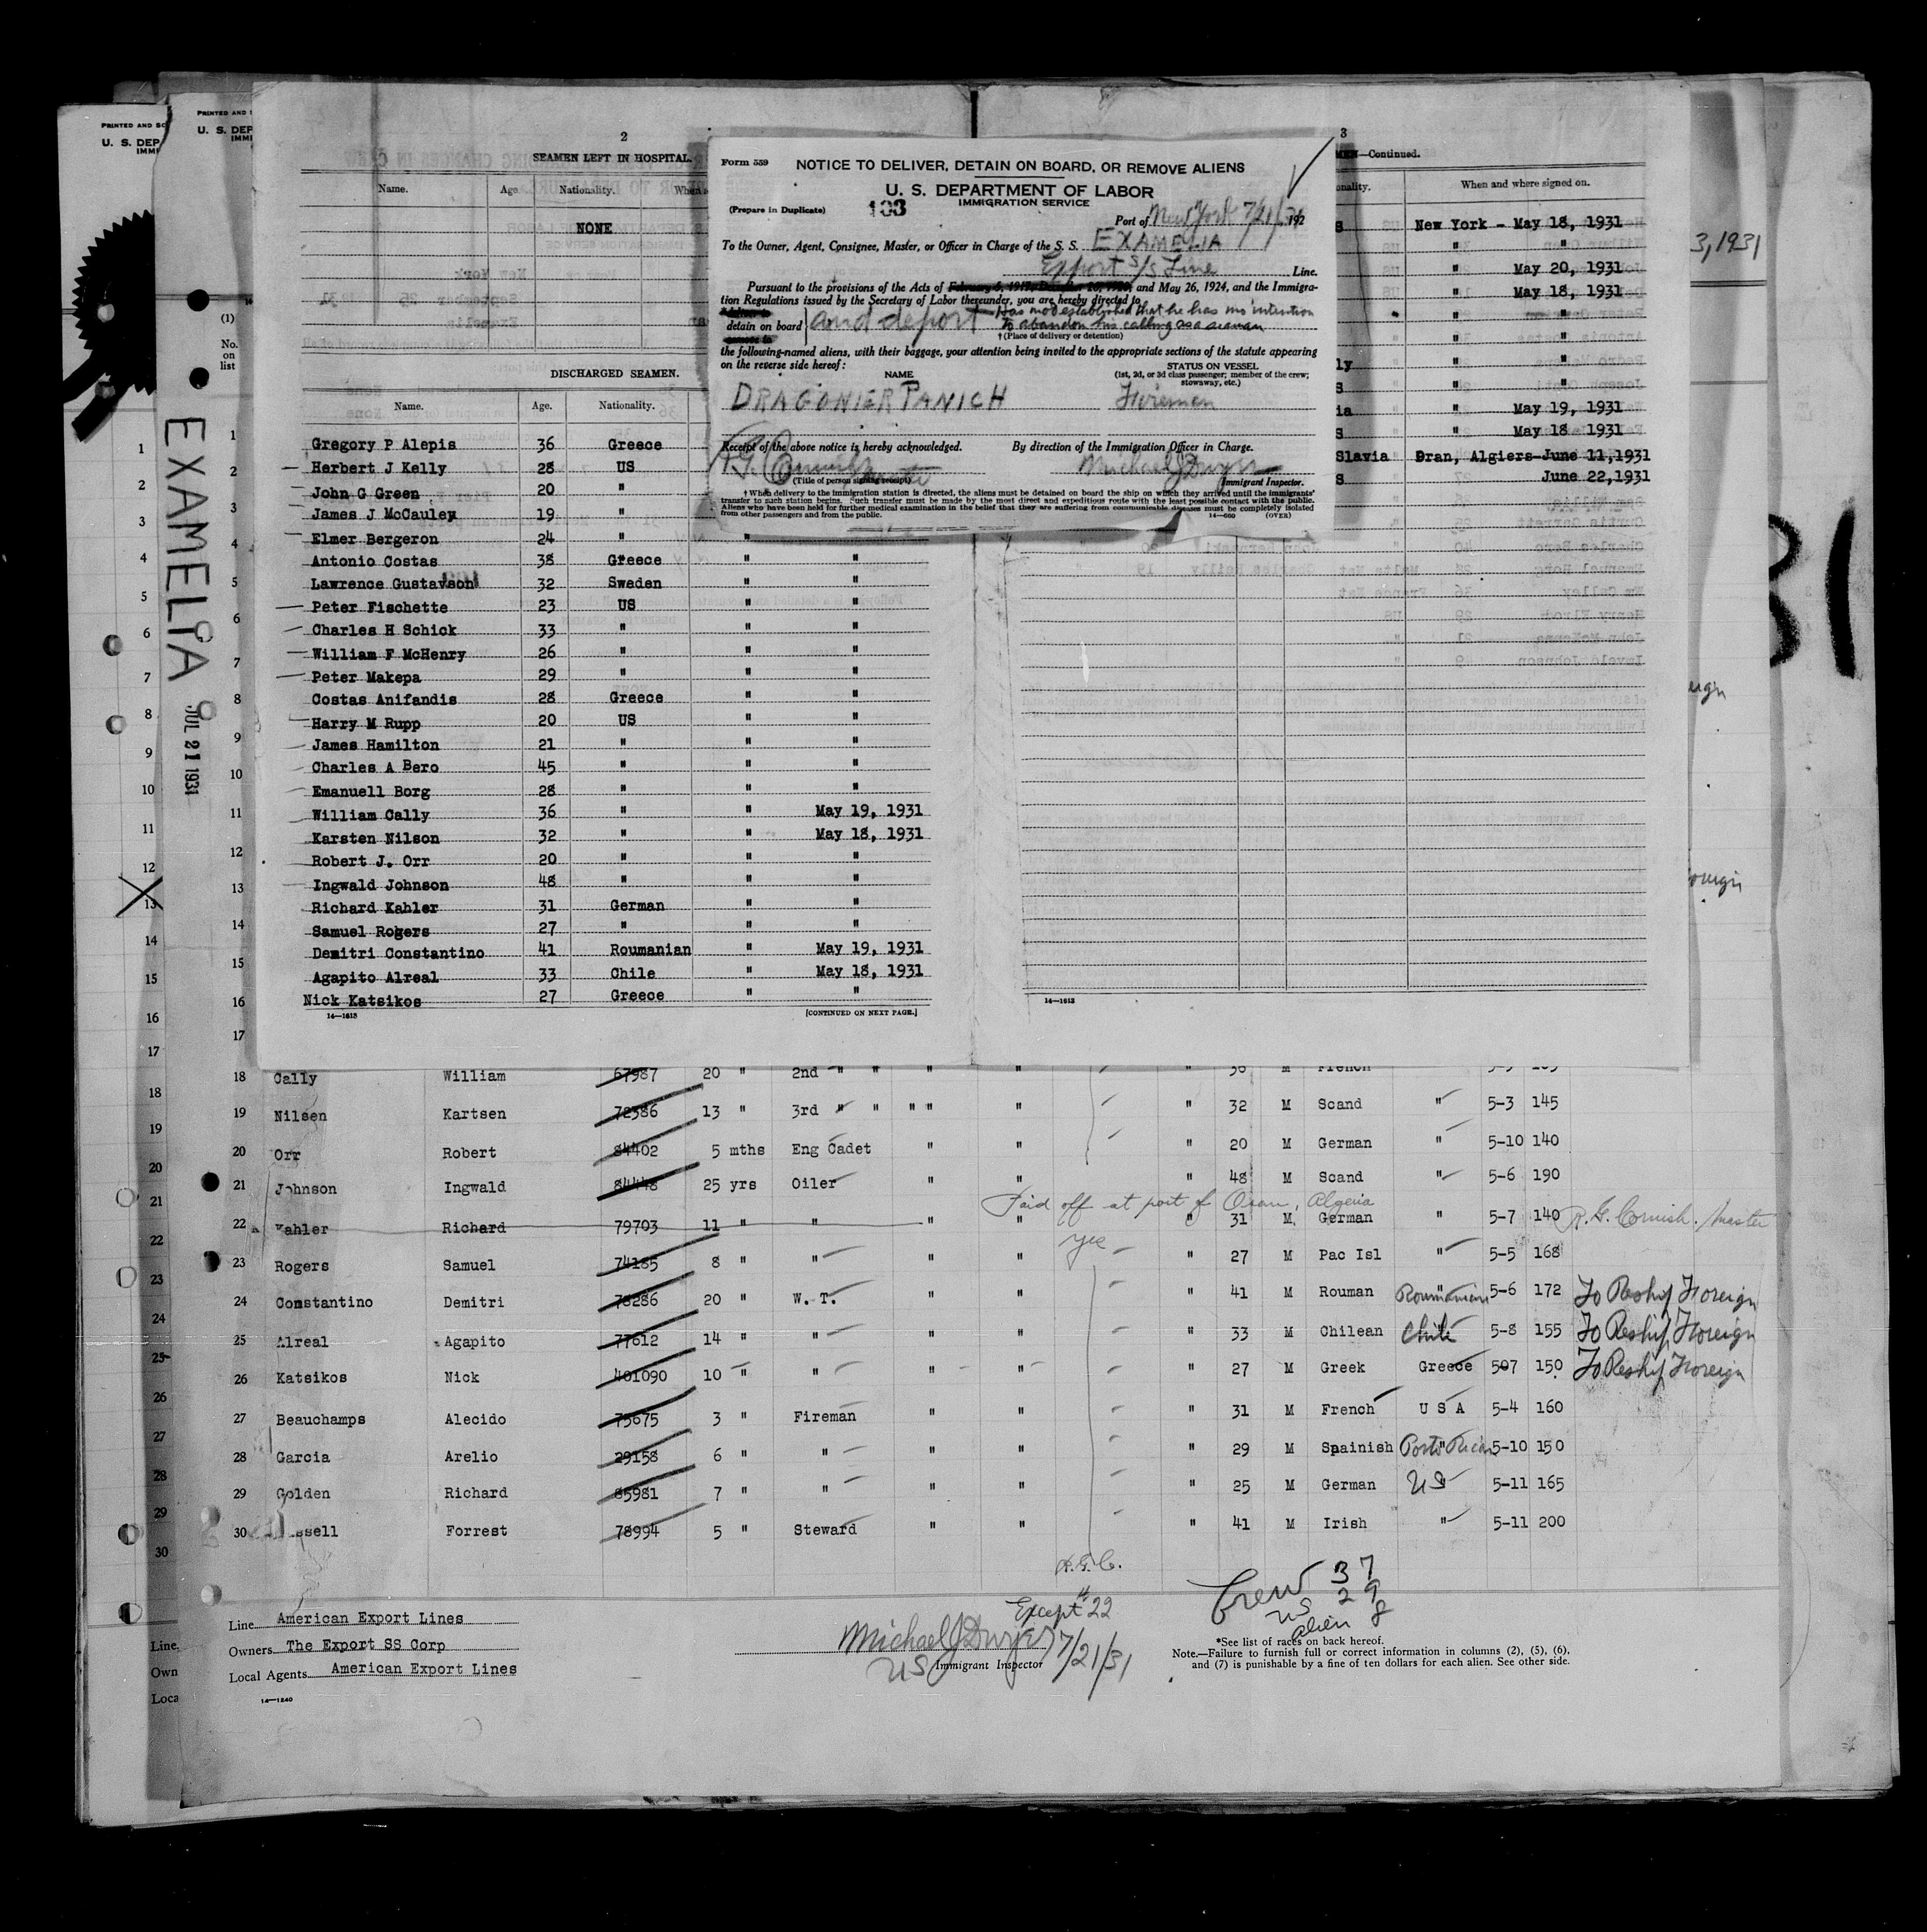 PRINTED AND
U. S. DEP
PRINTED AND
U. S. DEP
(1)
No.
on
list
EXAMELIA
JUL 21 1931
2
SEAMEN LEFT IN HOSPITAL.
Name. Age Nationality.
NONE
DISCHARGED SEAMEN.
Name. Age. Nationality.
Gregory P Alepis 36 Greece
Herbert J Kelly 28 US
John G Green 20 "
James J McCauley 19 "
Elmer Bergeron 24 " "
Antonio Costas 38 Greece " "
Lawrence Gustavson 32 Sweden " "
Peter Fischette 23 US " "
Charles H Schick 33 " " "
William F McHenry 26 " " "
Peter Makepa 29 " " "
Costas Anifandis 28 Greece " "
Harry M Rupp 20 US " "
James Hamilton 21 " " "
Charles A Bero 45 " " "
Emanuell Borg 28 " " "
William Cally 36 " " May 19, 1931
Karsten Nilson 32 " " May 18, 1931
Robert J. Orr 20 " " "
Ingwald Johnson 48 " " "
Richard Kahler 31 German " "
Samuel Rogers 27 " " "
Demitri Constantino 41 Roumanian " May 19, 1931
Agapito Alreal 33 Chile " May 18, 1931
Nick Katsikos 27 Greece " "
14—1613 [CONTINUED ON NEXT PAGE.]
Form 559
NOTICE TO DELIVER, DETAIN ON BOARD, OR REMOVE ALIENS
U. S. DEPARTMENT OF LABOR
IMMIGRATION SERVICE
(Prepare in Duplicate)
Port of New York 7/21/31 192
To the Owner, Agent, Consignee, Master, or Officer in Charge of the S. S. EXAMELIA
Export S/S Line Line.
Pursuant to the provisions of the Acts of February 5, 1917, December 26, 1920, and May 26, 1924, and the Immigra-
tion Regulations issued by the Secretary of Labor thereunder, you are hereby directed to
detain on board and deport Has not established that he has no intention
to abandon his calling as a seaman
† (Place of delivery or detention)
the following-named aliens, with their baggage, your attention being invited to the appropriate sections of the statute appearing
on the reverse side hereof:
NAME STATUS ON VESSEL
(1st, 2d, or 3d class passenger; member of the crew;
stowaway, etc.)
DRAGONIER PANICH Fireman
Receipt of the above notice is hereby acknowledged. By direction of the Immigration Officer in Charge.
Michael J Dwyer
(Title of person signing receipt) Immigrant Inspector.
† When delivery to the immigration station is directed, the aliens must be detained on board the ship on which they arrived until the immigrants'
transfer to such station begins. Such transfer must be made by the most direct and expeditious route with the least possible contact with the public.
Aliens who have been held for further medical examination in the belief that they are suffering from communicable diseases must be completely isolated
from other passengers and from the public. 14—660 (OVER)
3
—Continued.
When and where signed on.
S New York - May 18, 1931
" "
" May 20, 1931
" May 18, 1931
" "
" "
ly " "
S " "
ia " May 19, 1931
S " May 18 1931
Slavia Oran, Algiers-June 11,1931
S June 22,1931
14—1613
3,1931
18 Cally William 67987 20 " 2nd " " " " " 36 M French
19 Nilsen Kartsen 72386 13 " 3rd " " " " " " 32 M Scand " 5-3 145
20 Orr Robert 84402 5 mths Eng Cadet " " " 20 M German " 5-10 140
21 Johnson Ingwald 84448 25 yrs Oiler " " " 48 M Scand " 5-6 190
Paid off at port of Oran, Algeria
22 Kahler Richard 79703 11 " " " " " 31 M German " 5-7 140 R. G. Cornish. Master
yes
23 Rogers Samuel 74185 8 " " " " 27 M Pac Isl " 5-5 168
24 Constantino Demitri 78286 20 " W. T. " " " 41 M Rouman Roumanian 5-6 172 To Reship Foreign
25 Alreal Agapito 77612 14 " " " " " 33 M Chilean Chile 5-8 155 To Reship Foreign
26 Katsikos Nick 401090 10 " " " " " 27 M Greek Greece 507 150 To Reship Foreign
27 Beauchamps Alecido 75675 3 " Fireman " " " 31 M French U S A 5-4 160
28 Garcia Arelio 29158 6 " " " " " 29 M Spainish Porto Rican 5-10 150
29 Golden Richard 85981 7 " " " " " 25 M German US 5-11 165
30 ssell Forrest 78994 5 " Steward " " " 41 M Irish " 5-11 200
R.G.C.
Except #22
Crew 37
US 29
alien 8
Line American Export Lines
Owners The Export SS Corp
Local Agents American Export Lines
14—1240
Michael J Dwyer 7/21/31
US Immigrant Inspector
*See list of races on back hereof.
Note.—Failure to furnish full or correct information in columns (2), (5), (6),
and (7) is punishable by a fine of ten dollars for each alien. See other side.